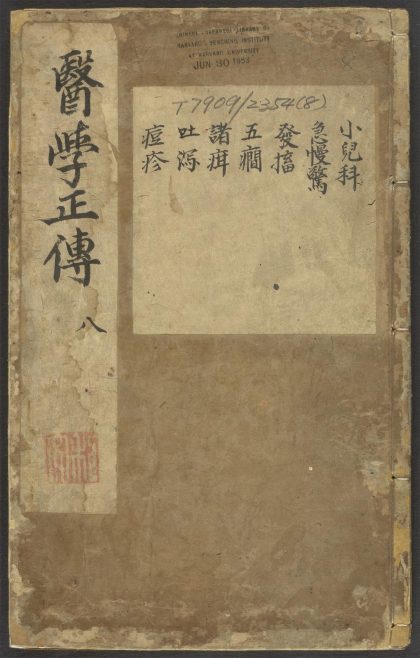 CHINESE-JAPANESE LIBRARY OF
HARVARD-YENCHING INSTITUTE
AT HARVARD UNIVERSITY
JUN 30 1953
T7909/2354(8)
小兒科
急慢驚
發搐
五癇
諸疳
吐瀉
痘疹
醫学正傳
八